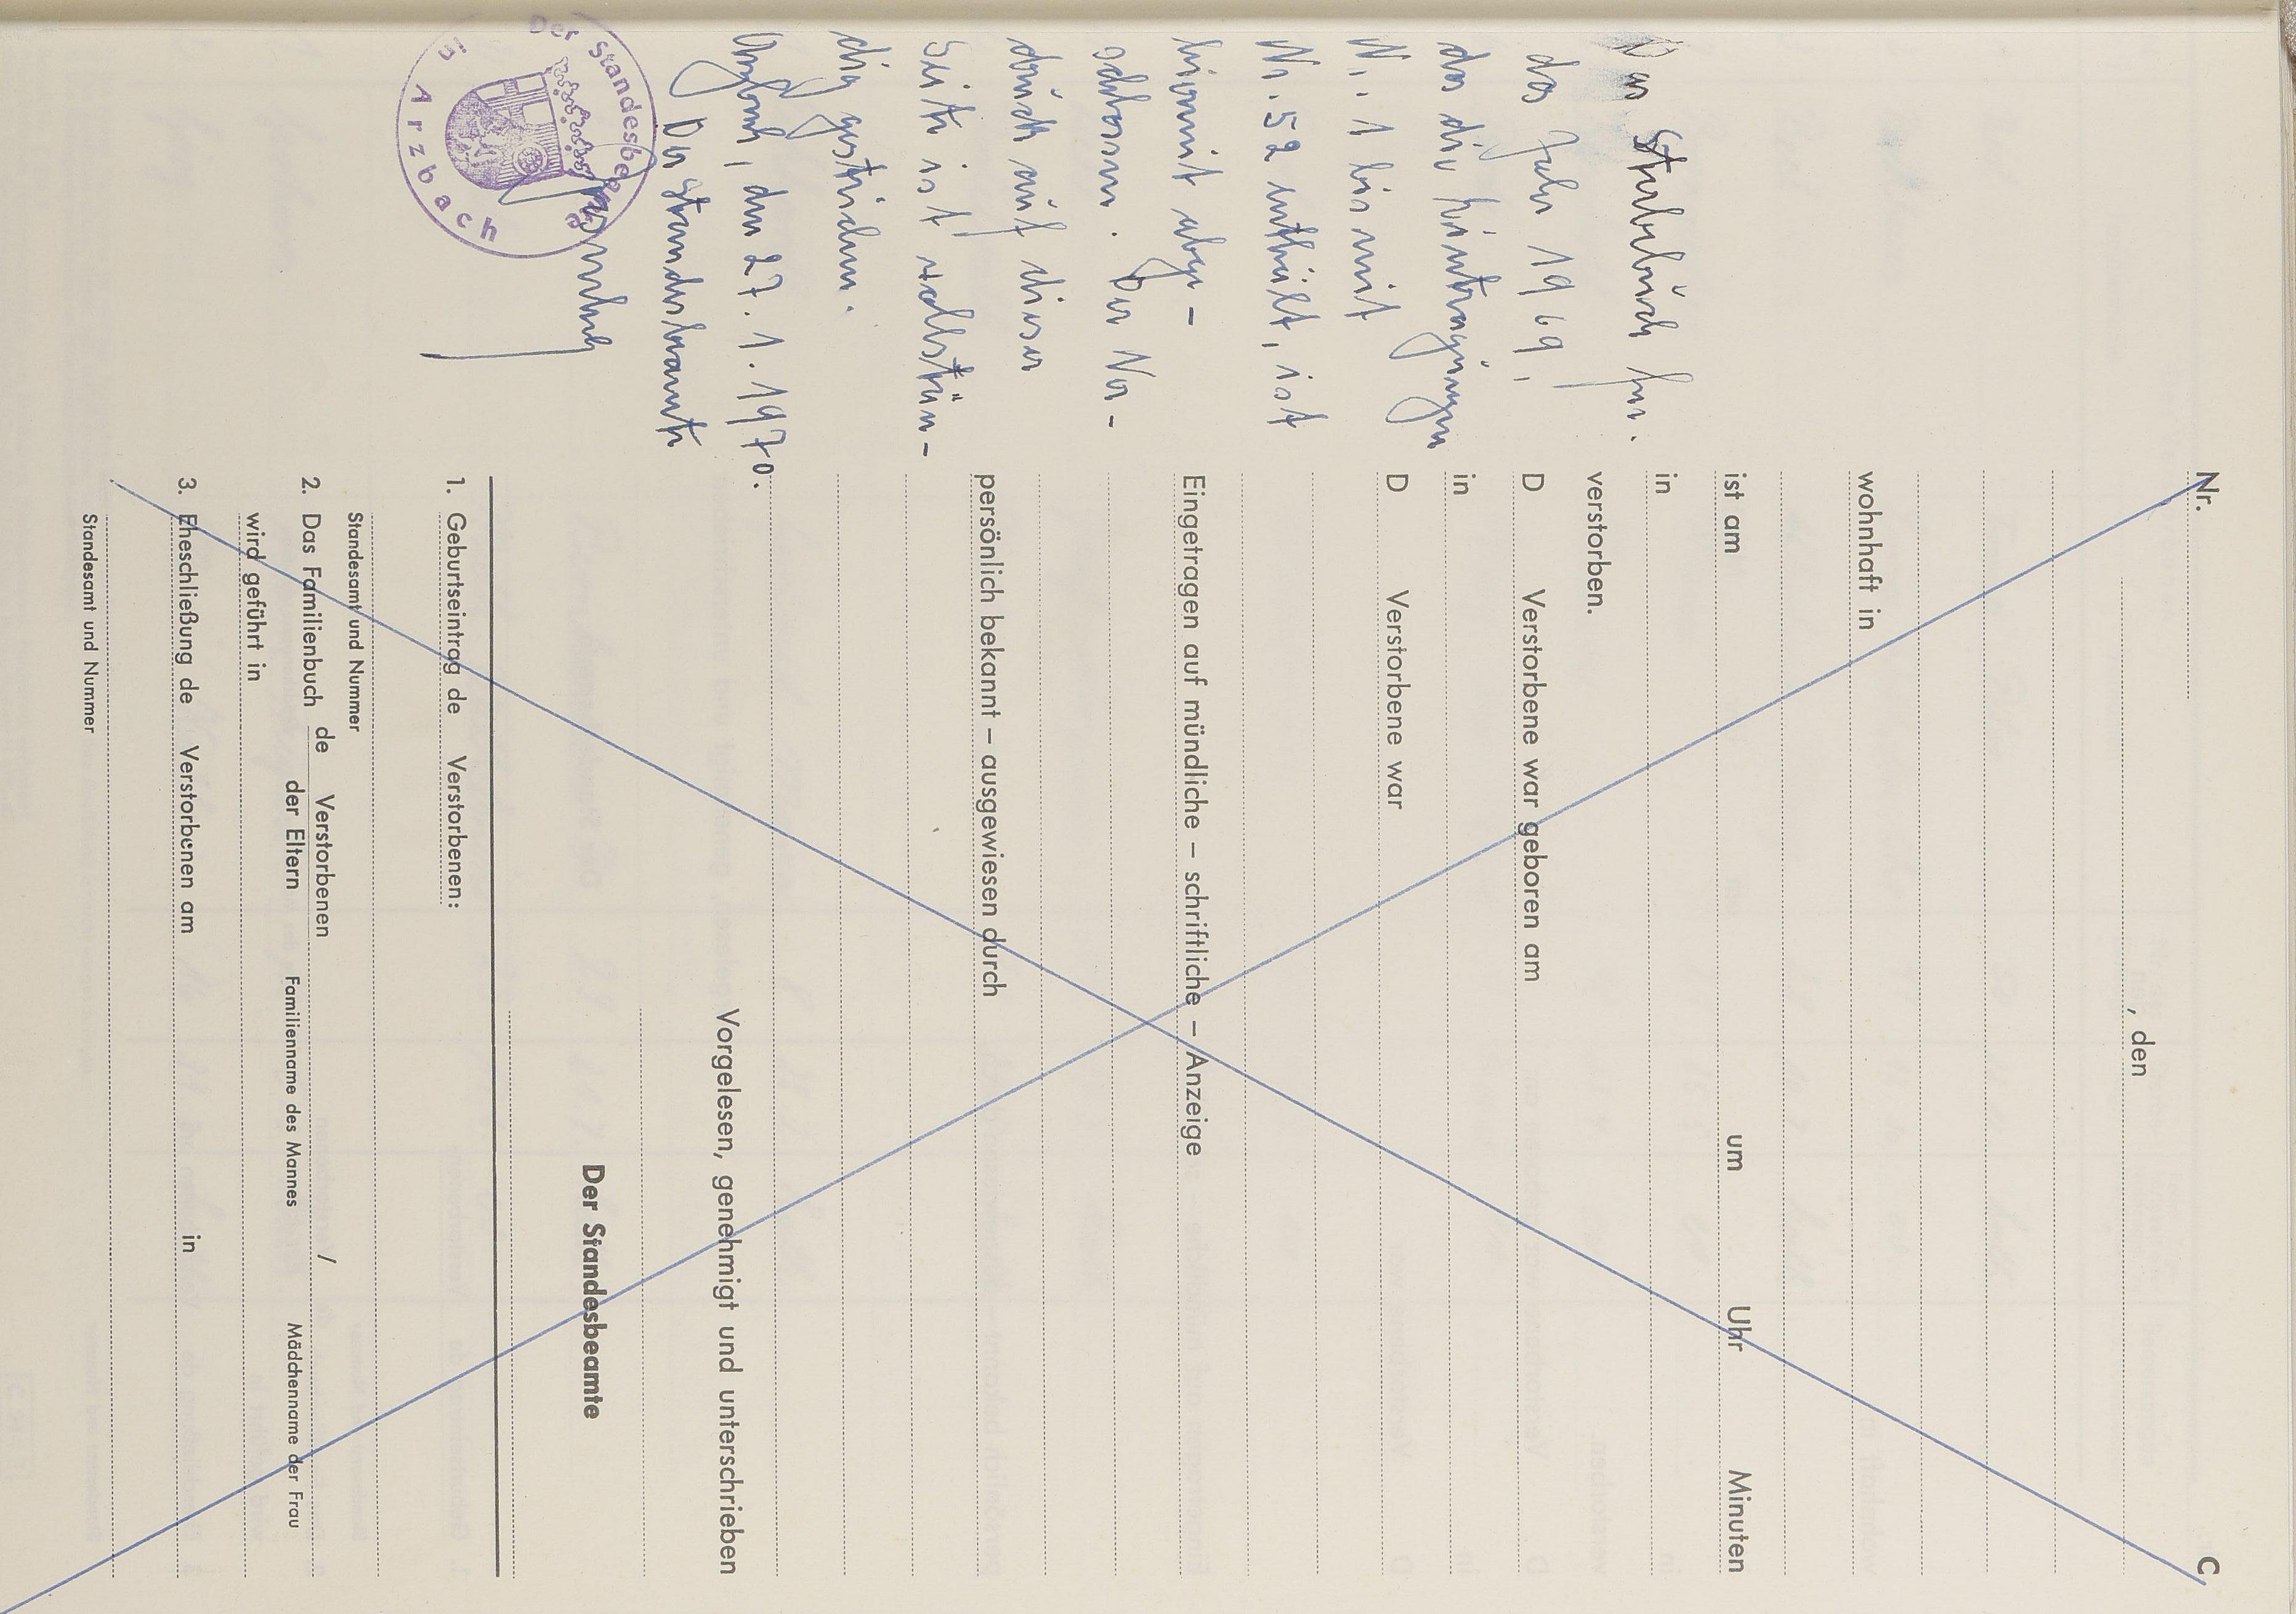 Das Sterbebuch für
das Jahr 1969,
das die Eintragungen
Nr. 1 bis mit
Nr. 52 enthält, ist
hiermit abge-
schlossen. Der Vor-
druck auf dieser
Seite ist vollstän-
dig gestrichen.
Arzbach, den 27. 1. 1970.
Der Standesbeamte
Der Standesbeamte
Arzbach
C
Nr.
, den
wohnhaft in
ist am um Uhr Minuten
in
verstorben.
D Verstorbene war geboren am
in
D Verstorbene war
Eingetragen auf mündliche – schriftliche – Anzeige
persönlich bekannt – ausgewiesen durch
Vorgelesen, genehmigt und unterschrieben
Der Standesbeamte
1. Geburtseintrag de Verstorbenen:
Standesamt und Nummer
2. Das Familienbuch de Verstorbenen /
der Eltern Familienname des Mannes Mädchenname der Frau
wird geführt in
3. Eheschließung de Verstorbenen am in
Standesamt und Nummer